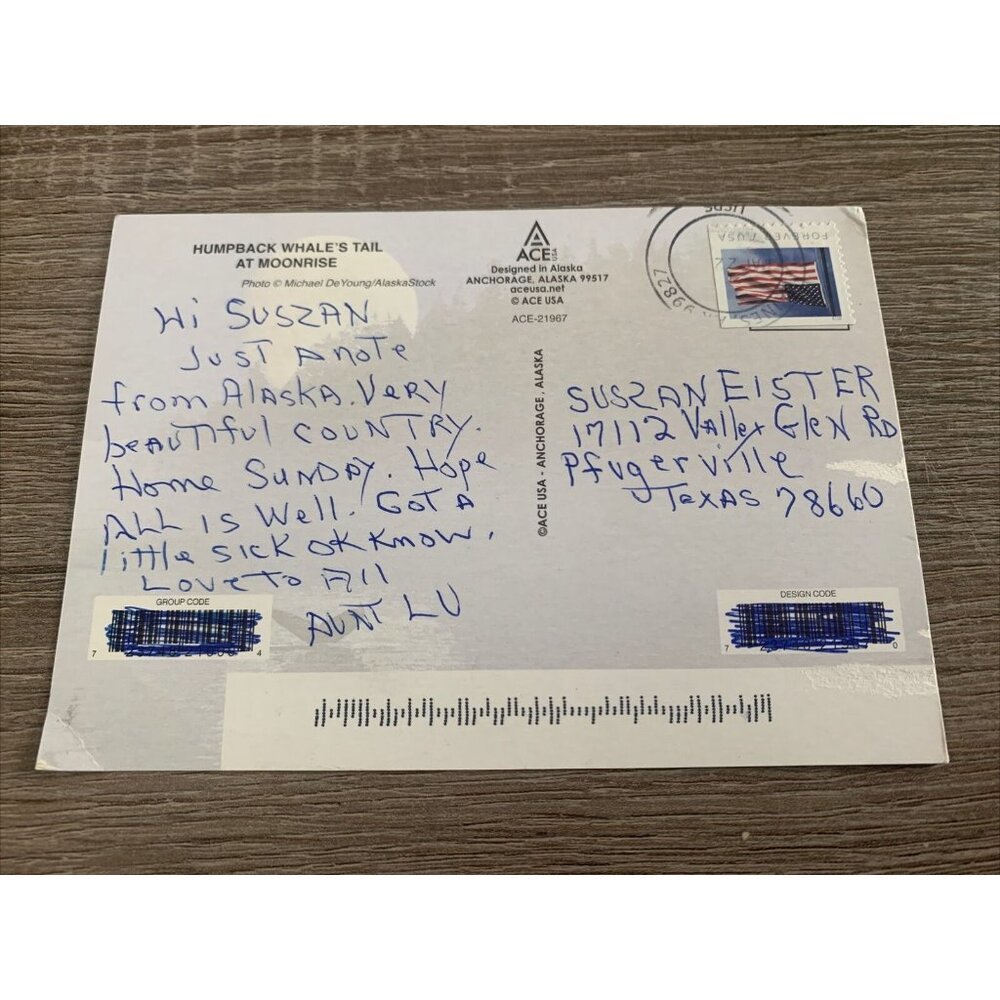 HUMPBACK WHALE'S TAIL
AT MOONRISE
Photo © Michael DeYoung/AlaskaStock
Hi SUSZAN
JUST A NOTE
from ALASKA. VERY
beautiful COUNTRY.
Home SUNDAY. Hope
ALL is Well. GOT A
little sick OK KNOW.
Love TO All
AUNT LU
ACE USA
Designed in Alaska
ANCHORAGE, ALASKA 99517
aceusa.net
© ACE USA
ACE-21967
©ACE USA - ANCHORAGE, ALASKA
USPS
99827
FOREVER / USA
SUSZAN EISTER
17112 Valley Glen RD
Pfugerville
Texas 78660
GROUP CODE
7 4
DESIGN CODE
7 0